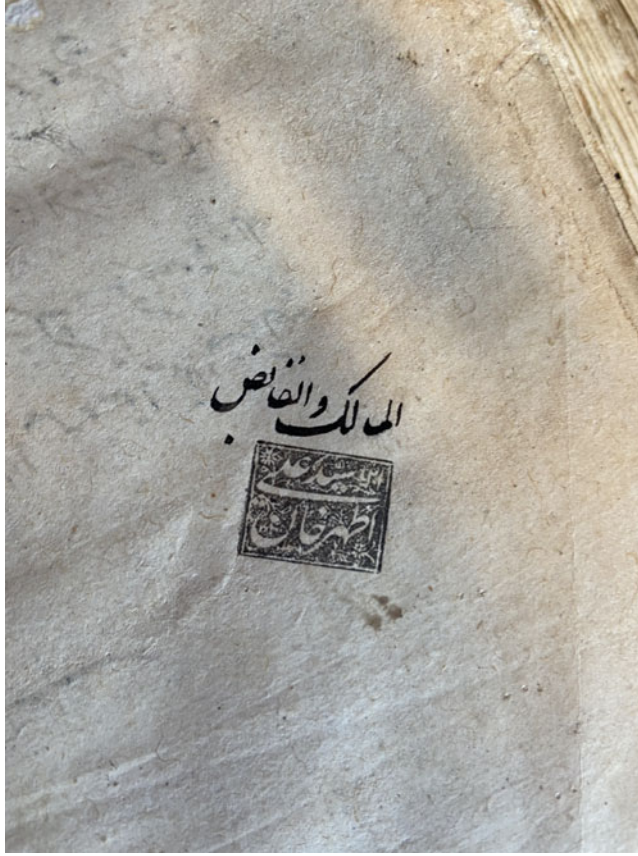 المالک والقابض
سید علی
اطهر خان